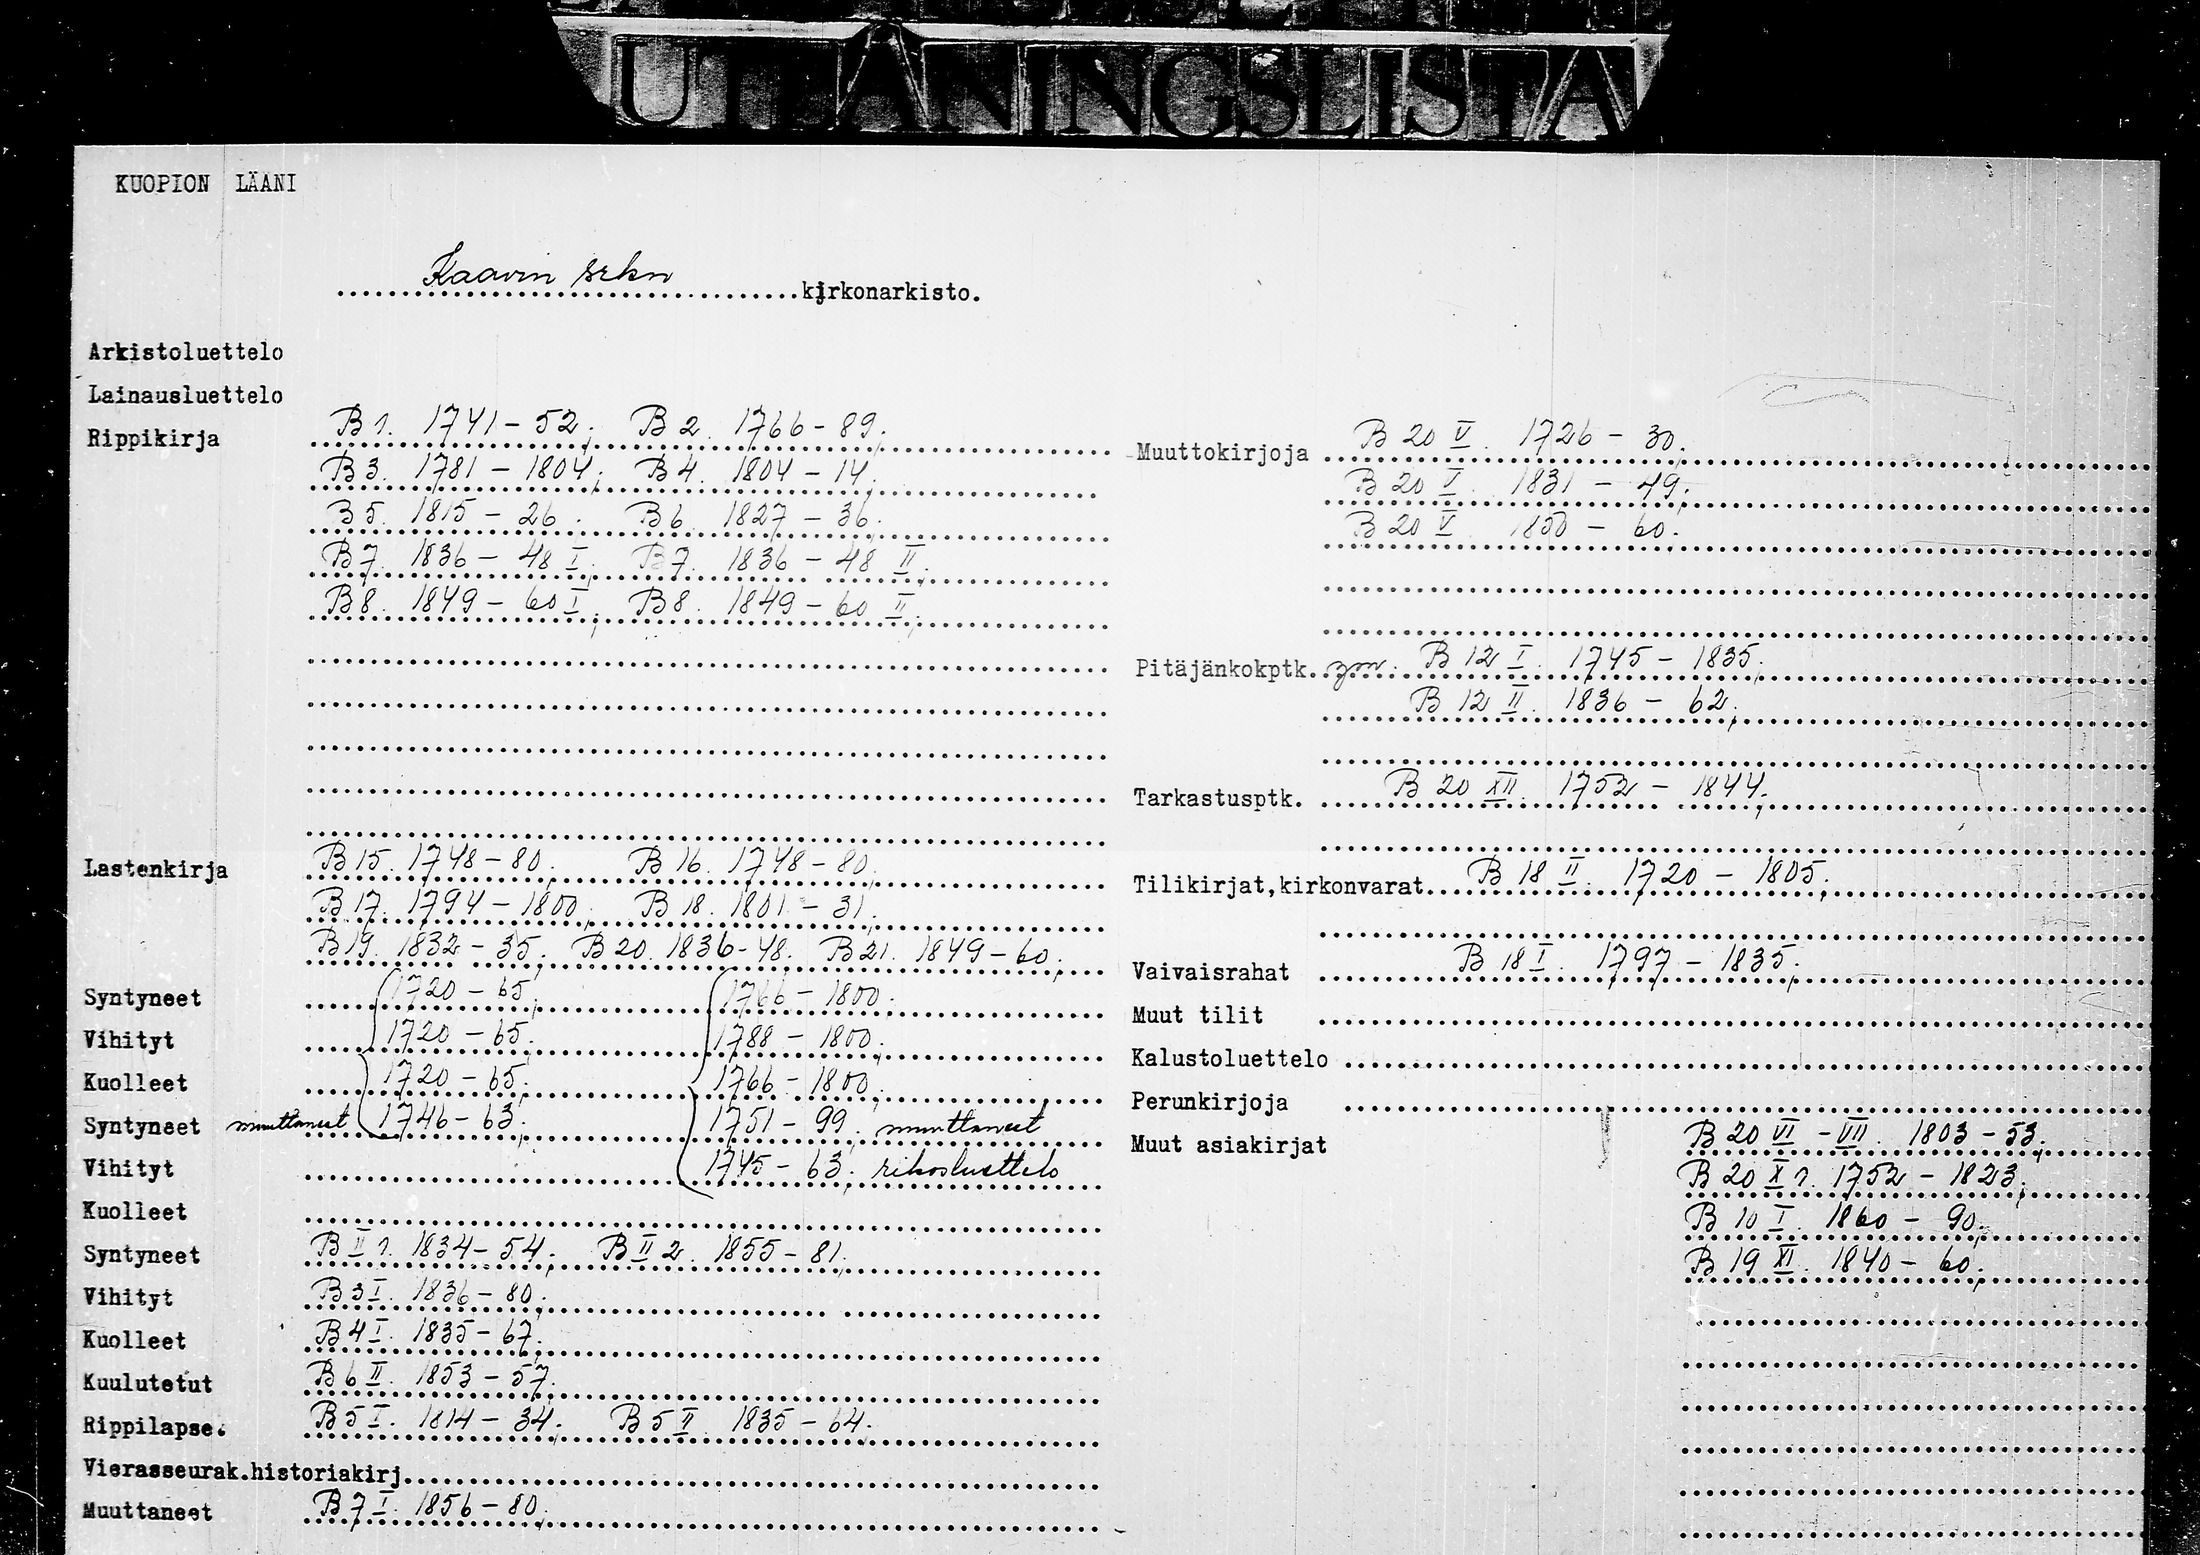 UTLÅNINGSLISTA
KUOPION LÄÄNI
Kaavin srkn kirkonarkisto.
Arkistoluettelo
Lainausluettelo
Rippikirja B 1. 1741-52; B 2. 1766-89;
B 3. 1781-1804; B 4. 1804-14;
B 5. 1815-26. B 6. 1827-36.
B 7. 1836-48 I; B 7. 1836-48 II.
B 8. 1849-60 I; B 8. 1849-60 II;
Lastenkirja B 15. 1748-80. B 16. 1748-80.
B 17. 1794-1800; B 18. 1801-31;
B 19. 1832-35; B 20. 1836-48. B 21. 1849-60;
Syntyneet 1720-65; 1766-1800.
Vihityt 1720-65. 1788-1800;
Kuolleet 1720-65; 1766-1800;
Syntyneet muuttaneet 1746-63; 1751-99; muuttaneet
Vihityt 1745-63; rikosluettelo
Kuolleet
Syntyneet B II 1. 1834-54; B II 2. 1855-81.
Vihityt B 3 I. 1836-80;
Kuolleet B 4 I. 1835-67.
Kuulutetut B 6 II. 1853-57.
Rippilapse. B 5 I. 1814-34; B 5 II 1835-64.
Vierasseurak.historiakirj.
Muuttaneet B 7 I. 1856-80.
Muuttokirjoja B 20 V. 1726-30.
B 20 V. 1831-49;
B 20 V 1850-60.
Pitäjänkokptk. ym. B 12 I. 1745-1835.
B 12 II. 1836-62.
Tarkastusptk. B 20 XII. 1752-1844.
Tilikirjat,kirkonvarat. B 18 II. 1720-1805.
Vaivaisrahat B 18 I. 1797-1835.
Muut tilit
Kalustoluettelo
Perunkirjoja
Muut asiakirjat B 20 VI-VII. 1803-53.
B 20 X 1. 1752-1823.
B 10 I. 1860-90.
B 19 XI. 1840-60.